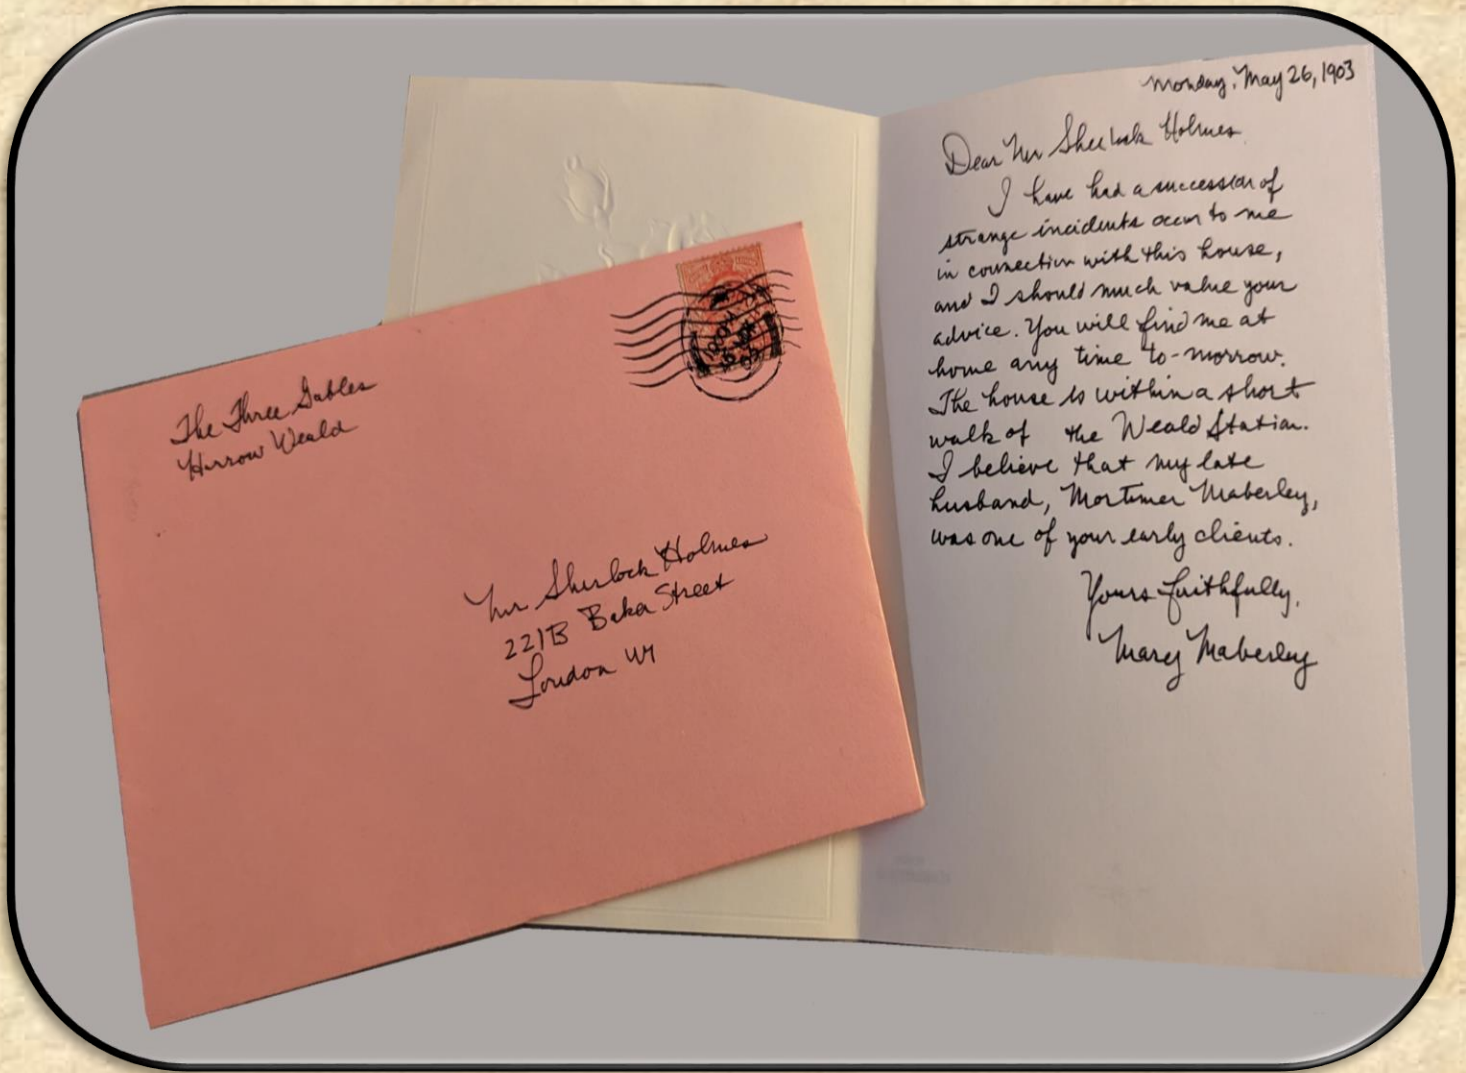 The Three Gables
Harrow Weald
Mr Sherlock Holmes
221B Baker Street
London W1
Monday, May 26, 1903
Dear Mr Sherlock Holmes
I have had a succession of
strange incidents occur to me
in connection with this house,
and I should much value your
advice. You will find me at
home any time to-morrow.
The house is within a short
walk of the Weald Station.
I believe that my late
husband, Mortimer Maberley,
was one of your early clients.
Yours faithfully,
Mary Maberley